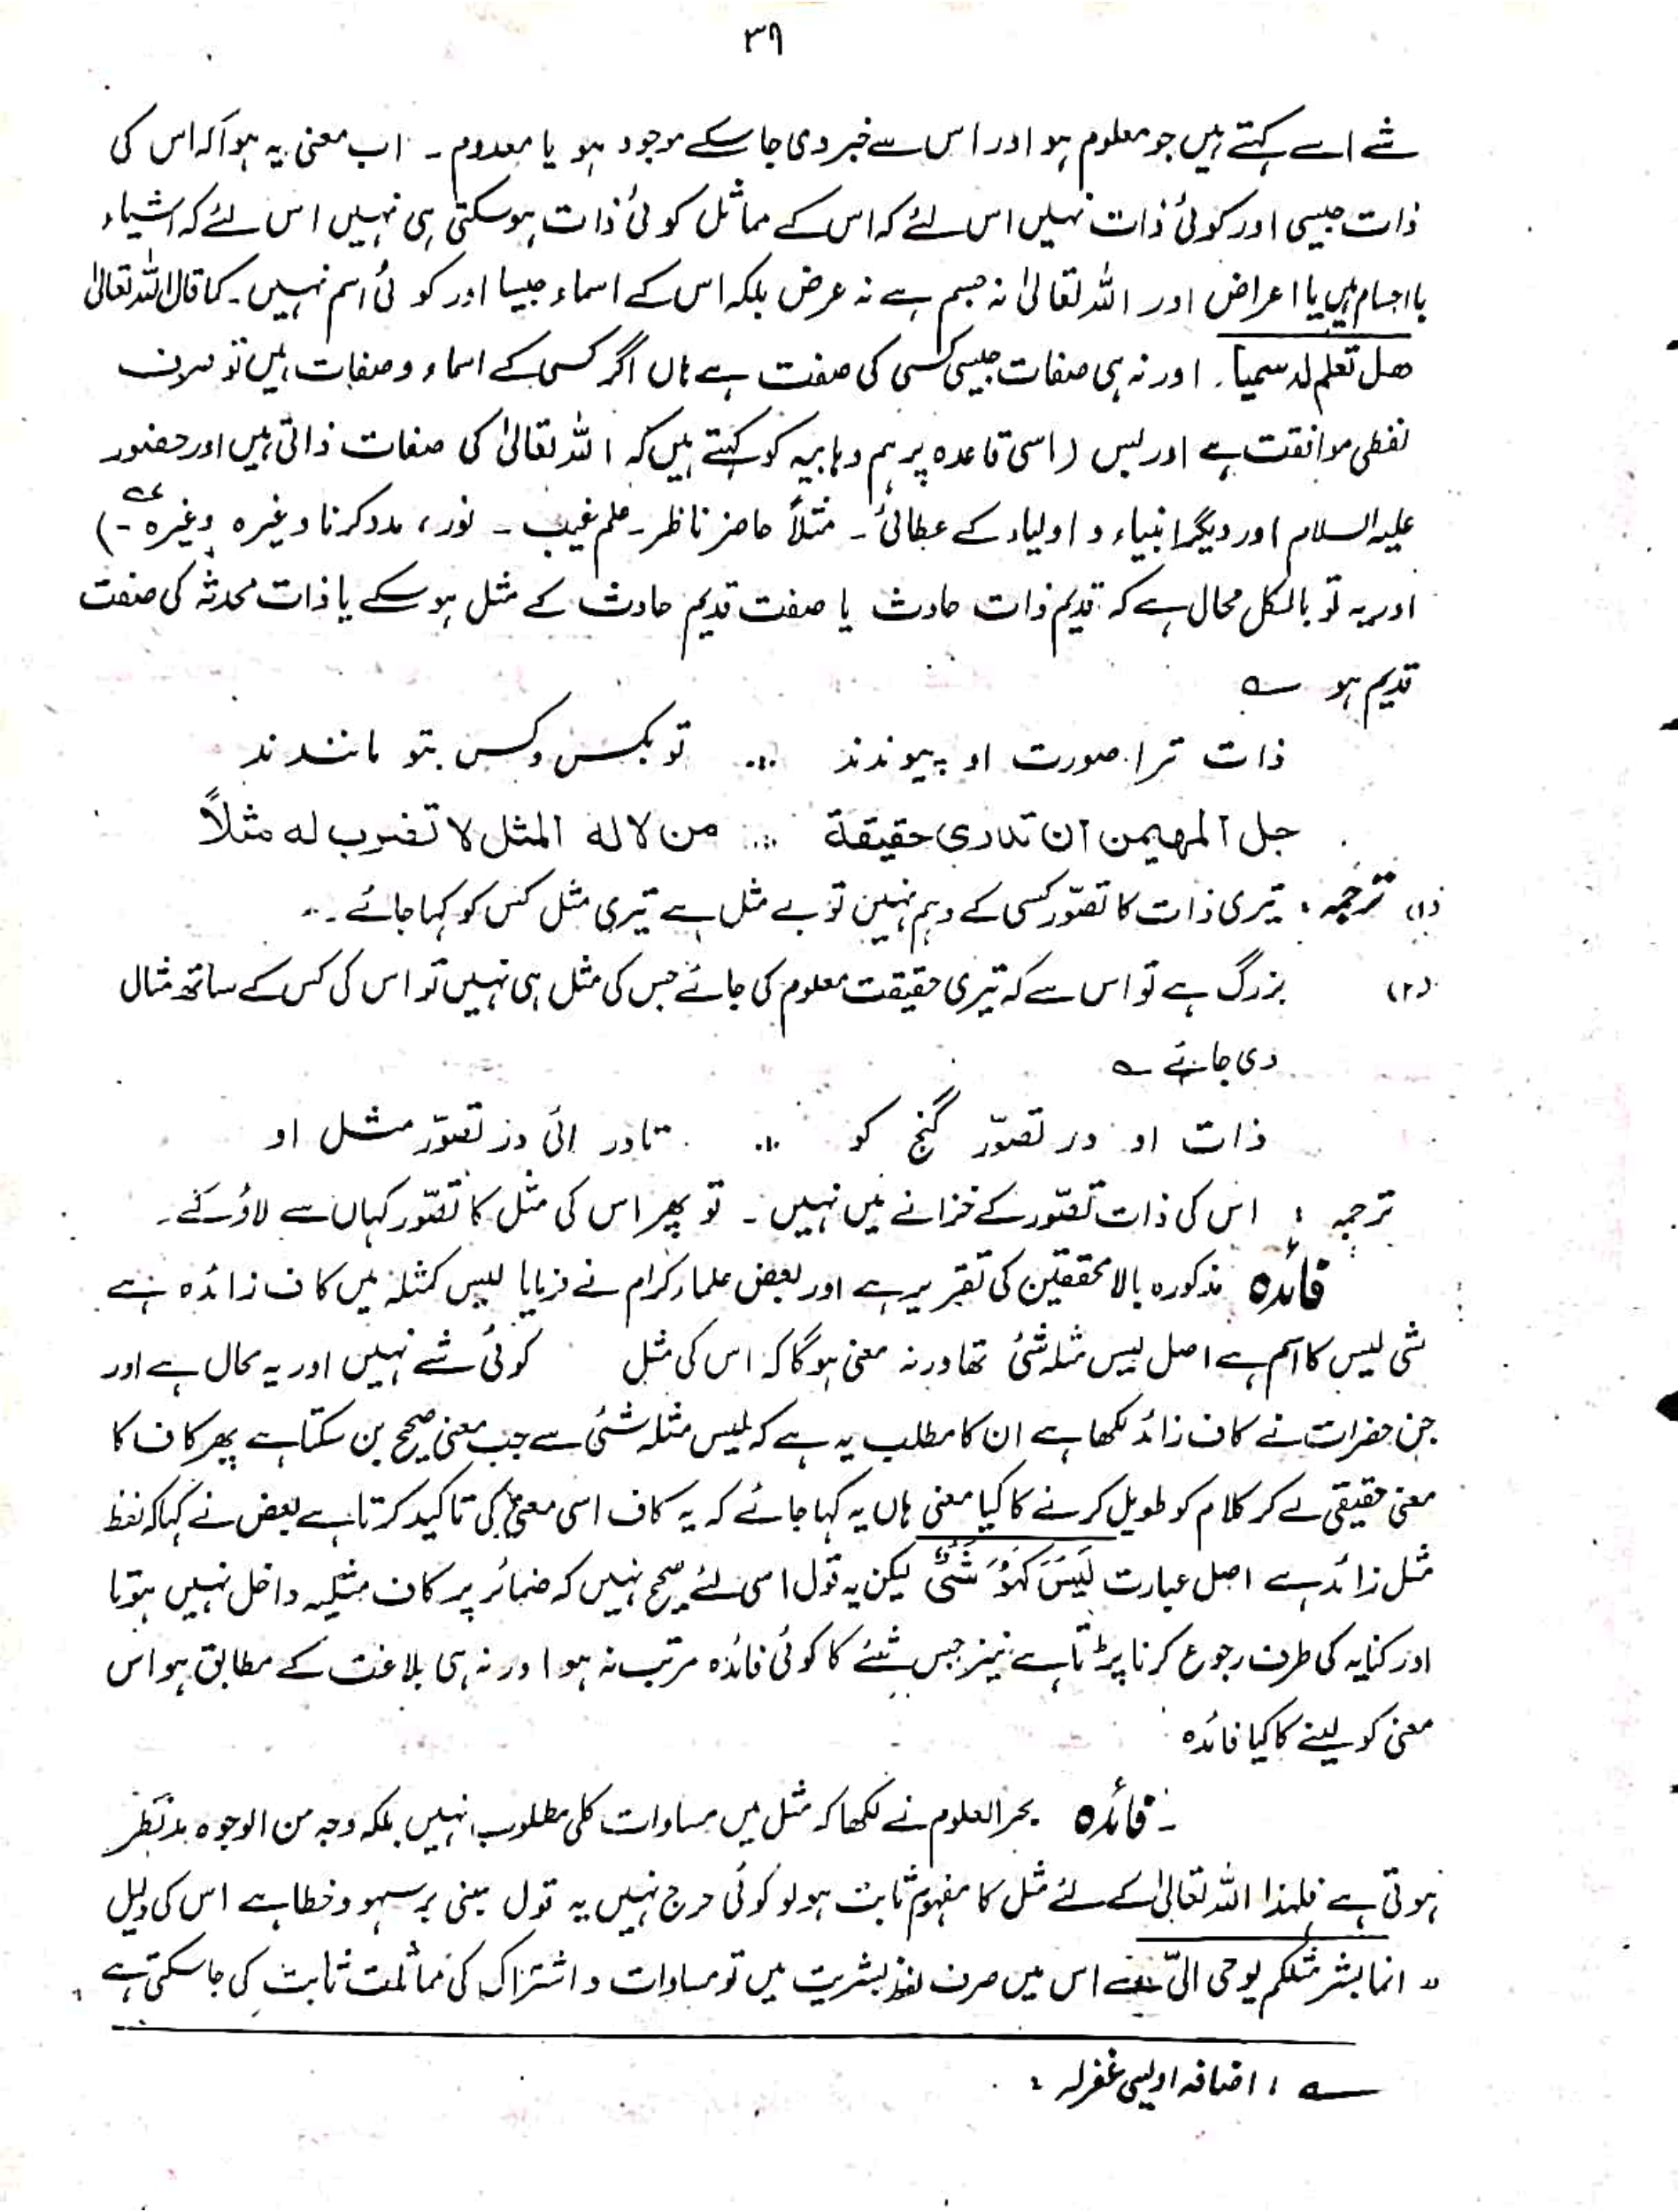 ۳۹
شے اسے کہتے ہیں جو معلوم ہو اور اس سے خبر دی جا سکے موجود ہو یا معدوم۔ اب معنی یہ ہوا کہ اس کی
ذات جیسی اور کوئی ذات نہیں اس لئے کہ اس کے مماثل کوئی ذات ہو سکتی ہی نہیں اس لئے کہ اشیاء
یا اجسام ہیں یا اعراض اور اللہ تعالیٰ نہ جسم ہے نہ عرض بلکہ اس کے اسماء جیسا اور کوئی اسم نہیں۔ کما قال اللہ تعالیٰ
ھل تعلم لہ سمیا۔ اور نہ ہی صفات جیسی کسی کی صفت ہے ہاں اگر کسی کے اسماء و صفات ہیں تو صرف
لفظی موافقت ہے اور بس (اسی قاعدہ پر ہم وہابیہ کو کہتے ہیں کہ اللہ تعالیٰ کی صفات ذاتی ہیں اور حضور
علیہ السلام اور دیگر انبیاء و اولیاء کے عطائی۔ مثلاً حاضر ناظر۔ علم غیب۔ نور، مدد کرنا وغیرہ وغیرہ۔)
اور یہ تو بالکل محال ہے کہ قدیم ذات حادث یا صفت قدیم حادث کے مثل ہو سکے یا ذات محدثہ کی صفت
قدیم ہو ؎
ذات ترا صورت او پیوندند ؞ تو بکس وکس بتو مانند ند
جل المھیمن ان تدری حقیقة ؞ من لا له المثل لا تضرب له مثلاً
(۱) ترجمہ: تیری ذات کا تصوّر کسی کے وہم نہیں تو بے مثل ہے تیری مثل کس کو کہا جائے۔
(۲) بزرگ ہے تو اس سے کہ تیری حقیقت معلوم کی جائے جس کی مثل ہی نہیں تو اس کی کس کے ساتھ مثال
دی جائے ؎
ذات او در تصوّر گنج کو ؞ تادر ائی در تصوّر مثل او
ترجمہ : اس کی ذات تصّور کے خزانے میں نہیں۔ تو پھر اس کی مثل کا تصّور کہاں سے لاؤ گے۔
فائدہ مذکورہ بالا محققین کی تقریر ہے اور بعض علماء کرام نے فرمایا لیس کمثلہ میں کاف زائدہ ہے
شی لیس کا اسم ہے اصل لیس مثلہ شئ تھا ورنہ معنی ہوگا کہ اس کی مثل کوئی شے نہیں اور یہ محال ہے اور
جن حضرات نے کاف زائد لکھا ہے ان کا مطلب یہ ہے کہ لیس مثلہ شئ سے جب معنی صحیح بن سکتا ہے پھر کاف کا
معنی حقیقی لے کر کلام کو طویل کرنے کا کیا معنی ہاں یہ کہا جائے کہ یہ کاف اسی معنی کی تاکید کرتا ہے بعض نے کہا کہ لفظ
مثل زائد ہے اصل عبارت لَیسَ کَھُوَ شَئٌ لیکن یہ قول اسی لئے صحیح نہیں کہ ضمائر پر کاف مثلیہ داخل نہیں ہوتا
اور کنایہ کی طرف رجوع کرنا پڑتا ہے نیز جس شئے کا کوئی فائدہ مرتب نہ ہو اور نہ ہی بلاغت کے مطابق ہو اس
معنی کو لینے کا کیا فائدہ
فائدہ بحر العلوم نے لکھا کہ مثل میں مساوات کلی مطلوب نہیں بلکہ وجہ من الوجوہ مد نظر
ہوتی ہے فلہذا اللہ تعالیٰ کے لئے مثل کا مفہوم ثابت ہو لو کوئی حرج نہیں یہ قول مبنی بر سہو و خطا ہے اس کی دلیل
" انما بشر مثلکم یوحی الیّ ہے اس میں صرف لفظ بشریت میں تو مساوات و اشتراک کی مماثلت ثابت کی جا سکتی ہے
؎ ، اضافہ اویسی غفرلہ